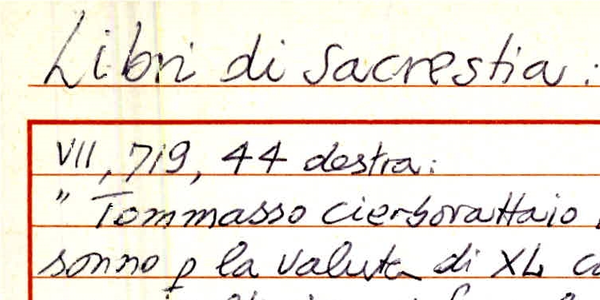 Libri di sacrestia:
VII, 719, 44 destra:
" Tommasso cierborattaio
sonno p la valuta di XL